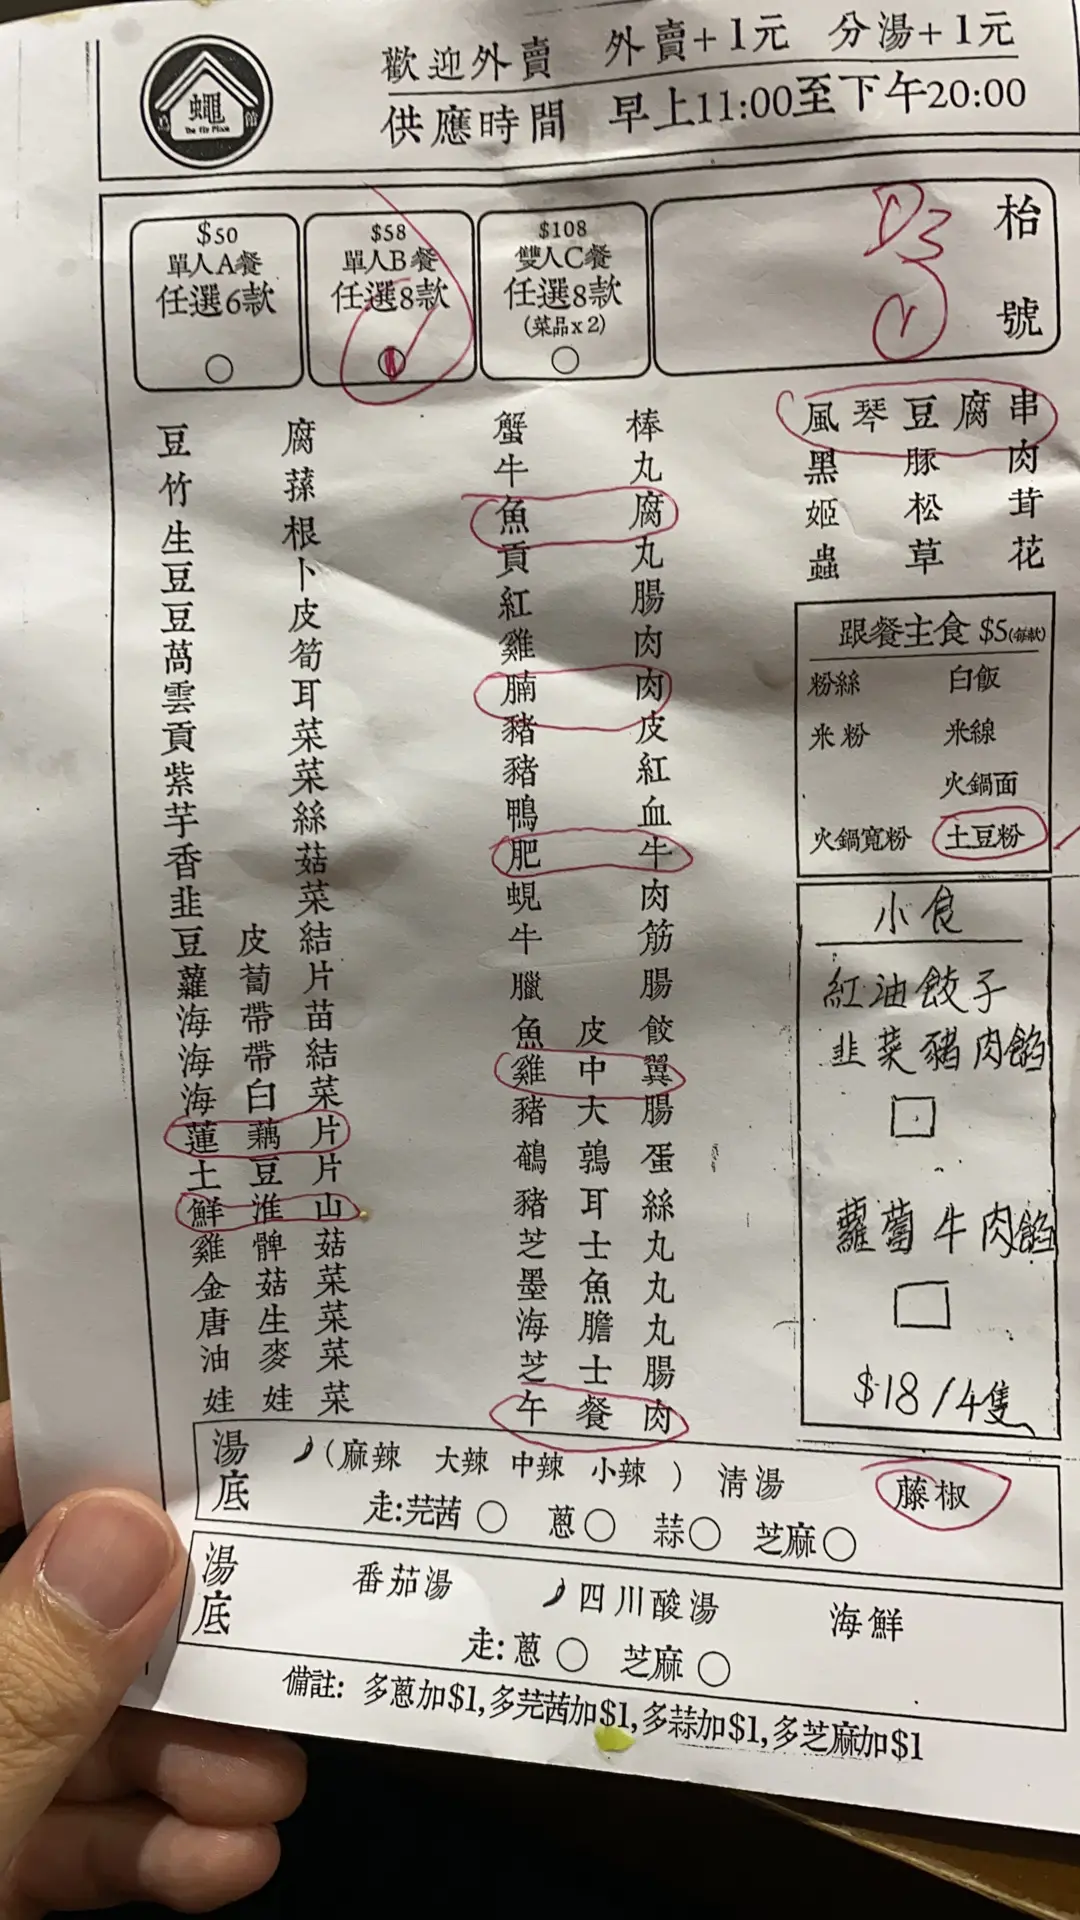 歡迎外賣 外賣+1元 分湯+1元
供應時間 早上11:00至下午20:00
蠅
The Fly Place
館
$50
單人A餐
任選6款
$58
單人B餐
任選8款
$108
雙人C餐
任選8款
(菜品x2)
枱號
D3
1
豆腐
竹蓀
生根
豆卜
豆皮
萵筍
雲耳
貢菜
紫菜
芋絲
香菇
韭菜
豆皮結
蘿蔔片
海帶苗
海帶結
海白菜
蓮藕片
土豆片
鮮淮山
雞髀菇
金菇菜
唐生菜
油麥菜
娃娃菜
蟹棒
牛丸
魚腐
貢丸
紅腸
雞肉
腩肉
豬皮
豬紅
鴨血
肥牛
蜆肉
牛筋
臘腸
魚皮餃
雞中翼
豬大腸
鵪鶉蛋
豬耳絲
芝士丸
墨魚丸
海膽丸
芝士腸
午餐肉
風琴豆腐串
黑豚肉
姬松茸
蟲草花
跟餐主食 $5(每款)
粉絲 白飯
米粉 米線
火鍋面
火鍋寬粉 土豆粉
小食
紅油餃子
韭菜豬肉餡
蘿蔔牛肉餡
$18/4隻
湯底 (麻辣 大辣 中辣 小辣) 清湯 藤椒
走:芫茜 蔥 蒜 芝麻
湯底 番茄湯 四川酸湯 海鮮
走:蔥 芝麻
備註: 多蔥加$1,多芫茜加$1,多蒜加$1,多芝麻加$1